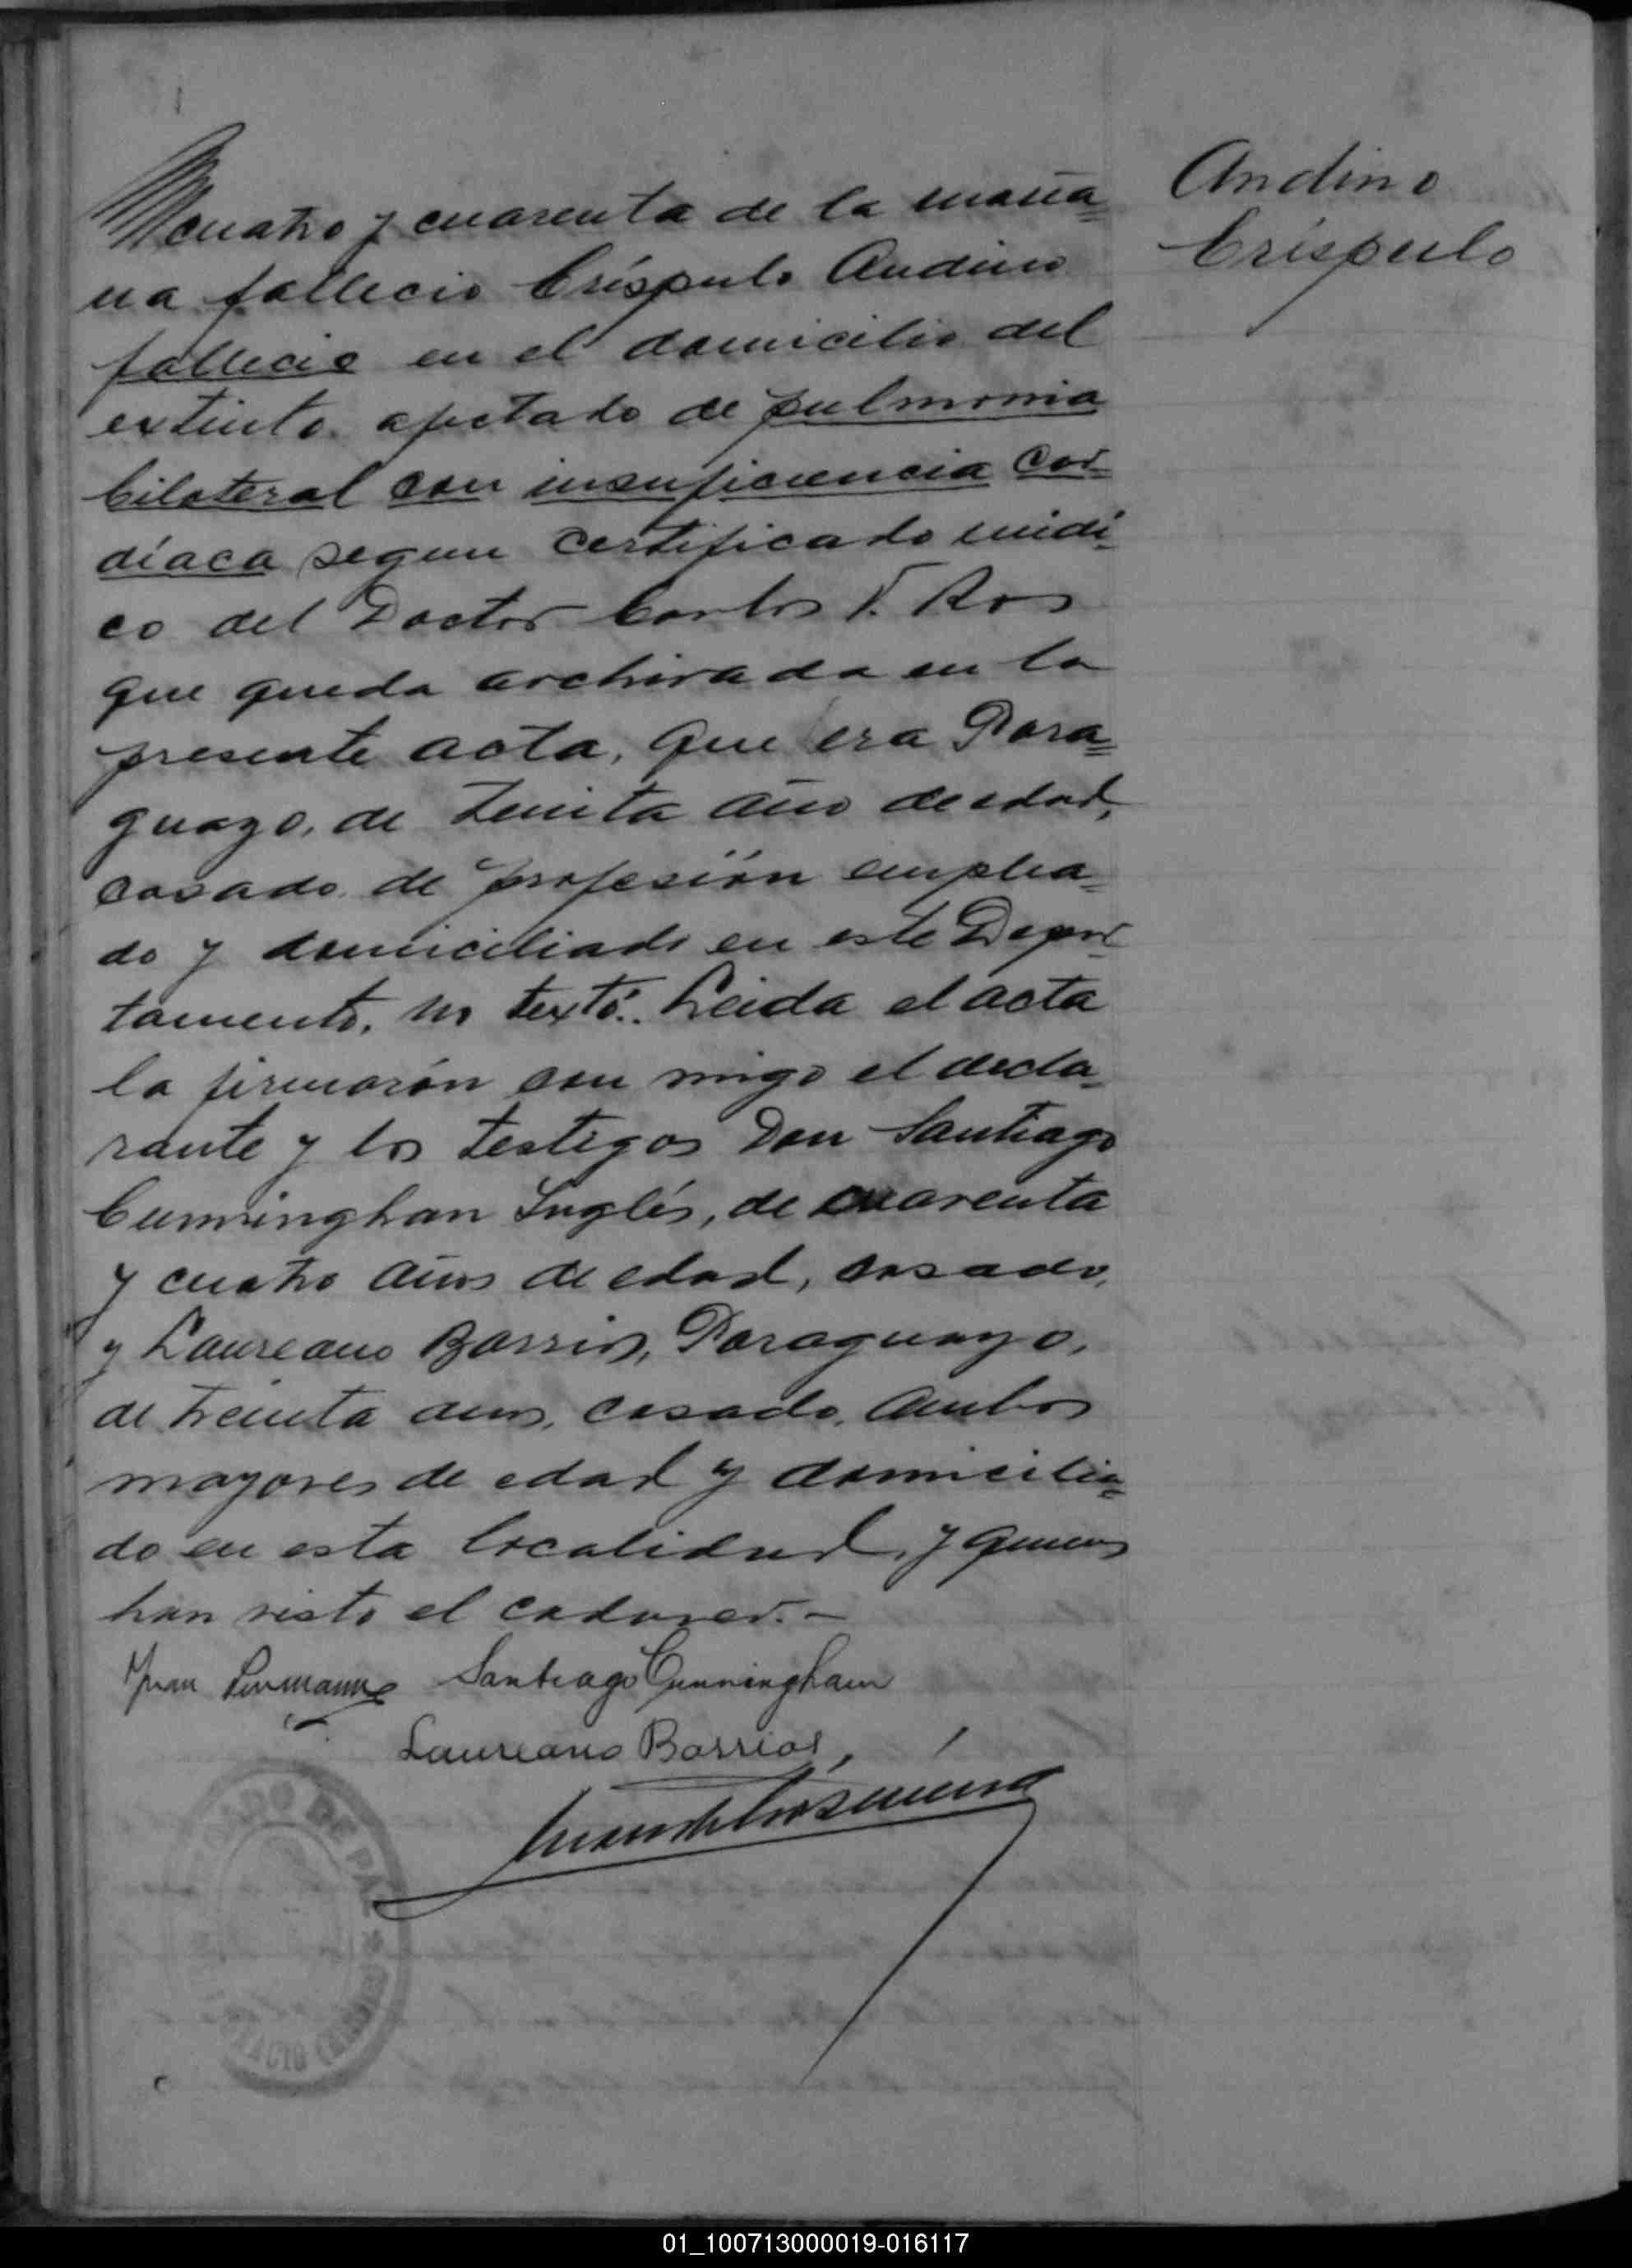 Andino
Críspulo
cuatro y cuarenta de la maña=
na fallecio Críspulo Andino
fallecio en el domicilio del
extinto. afectado de pulmonia
bilateral con insuficiencia Car=
díaca segun certificado médi=
co del Doctor Carlos V. Ros
que queda archivada en la
presente acta, que era Para=
guayo, de treinta años de edad,
casado. de profesión emplea=
do y domiciliado en este Depar=
tamento. no textó.. Leida el acta
la firmarón con migo el decla=
rante y los testigos Don Santiago
Cunninghan Inglés, de cuarenta
y cuatro años de edad, casado,
y Laureano Barrios, Paraguayo,
de treinta años, casado. Ambos
mayores de edad y domicilia=
do en esta localidad, y quienes
han visto el cadaver.-
Juan Santiago Cunningham
Laureano Barrios
JUZGADO DE PAZ
01_100713000019-016117